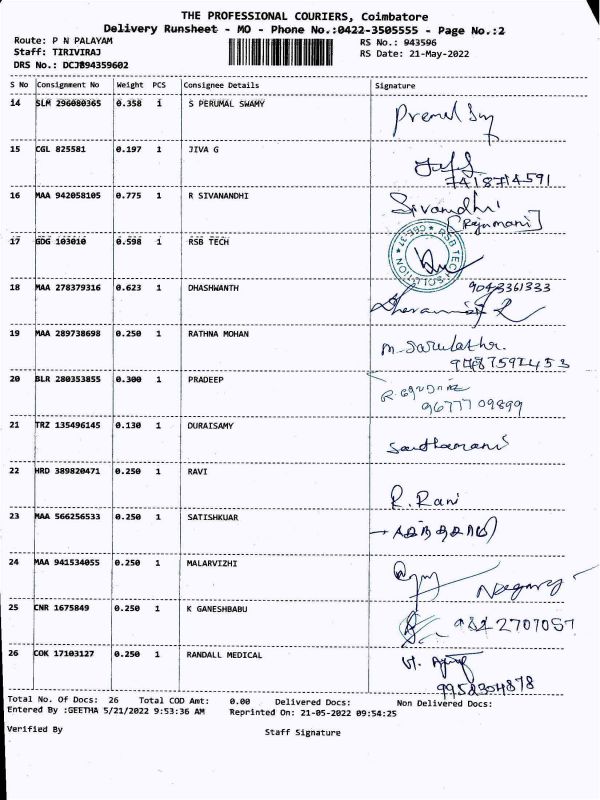 THE PROFESSIONAL COURIERS, Coimbatore
Delivery Runsheet - MO - Phone No.:0422-3505555 - Page No.:2
Route: P N PALAYAM
RS No.: 943596
Staff: TIRIVIRAJ
RS Date: 21-May-2022
DRS No.: DCJB94359602
S No Consignment No Weight PCS Consignee Details Signature
14 SLM 296080365 0.358 1 S PERUMAL SWAMY
15 CGL 825581 0.197 1 JIVA G
7418714591
16 MAA 942058105 0.775 1 R SIVANANDHI Sivanandhi
[Rajamani]
17 GDG 103010 0.598 1 RSB TECH
RSB TECH SOLUTION * CBE-37 *
18 MAA 278379316 0.623 1 DHASHWANTH 9043361333
19 MAA 289738698 0.250 1 RATHNA MOHAN
20 BLR 280353855 0.300 1 PRADEEP
9677709899
21 TRZ 135496145 0.130 1 DURAISAMY Santhamani
22 HRD 389820471 0.250 1 RAVI R. Rani
23 MAA 566256533 0.250 1 SATISHKUAR
24 MAA 941534055 0.250 1 MALARVIZHI
25 CNR 1675849 0.250 1 K GANESHBABU
26 COK 17103127 0.250 1 RANDALL MEDICAL
9958304878
Total No. Of Docs: 26 Total COD Amt: 0.00 Delivered Docs: Non Delivered Docs:
Entered By :GEETHA 5/21/2022 9:53:36 AM Reprinted On: 21-05-2022 09:54:25
Verified By Staff Signature